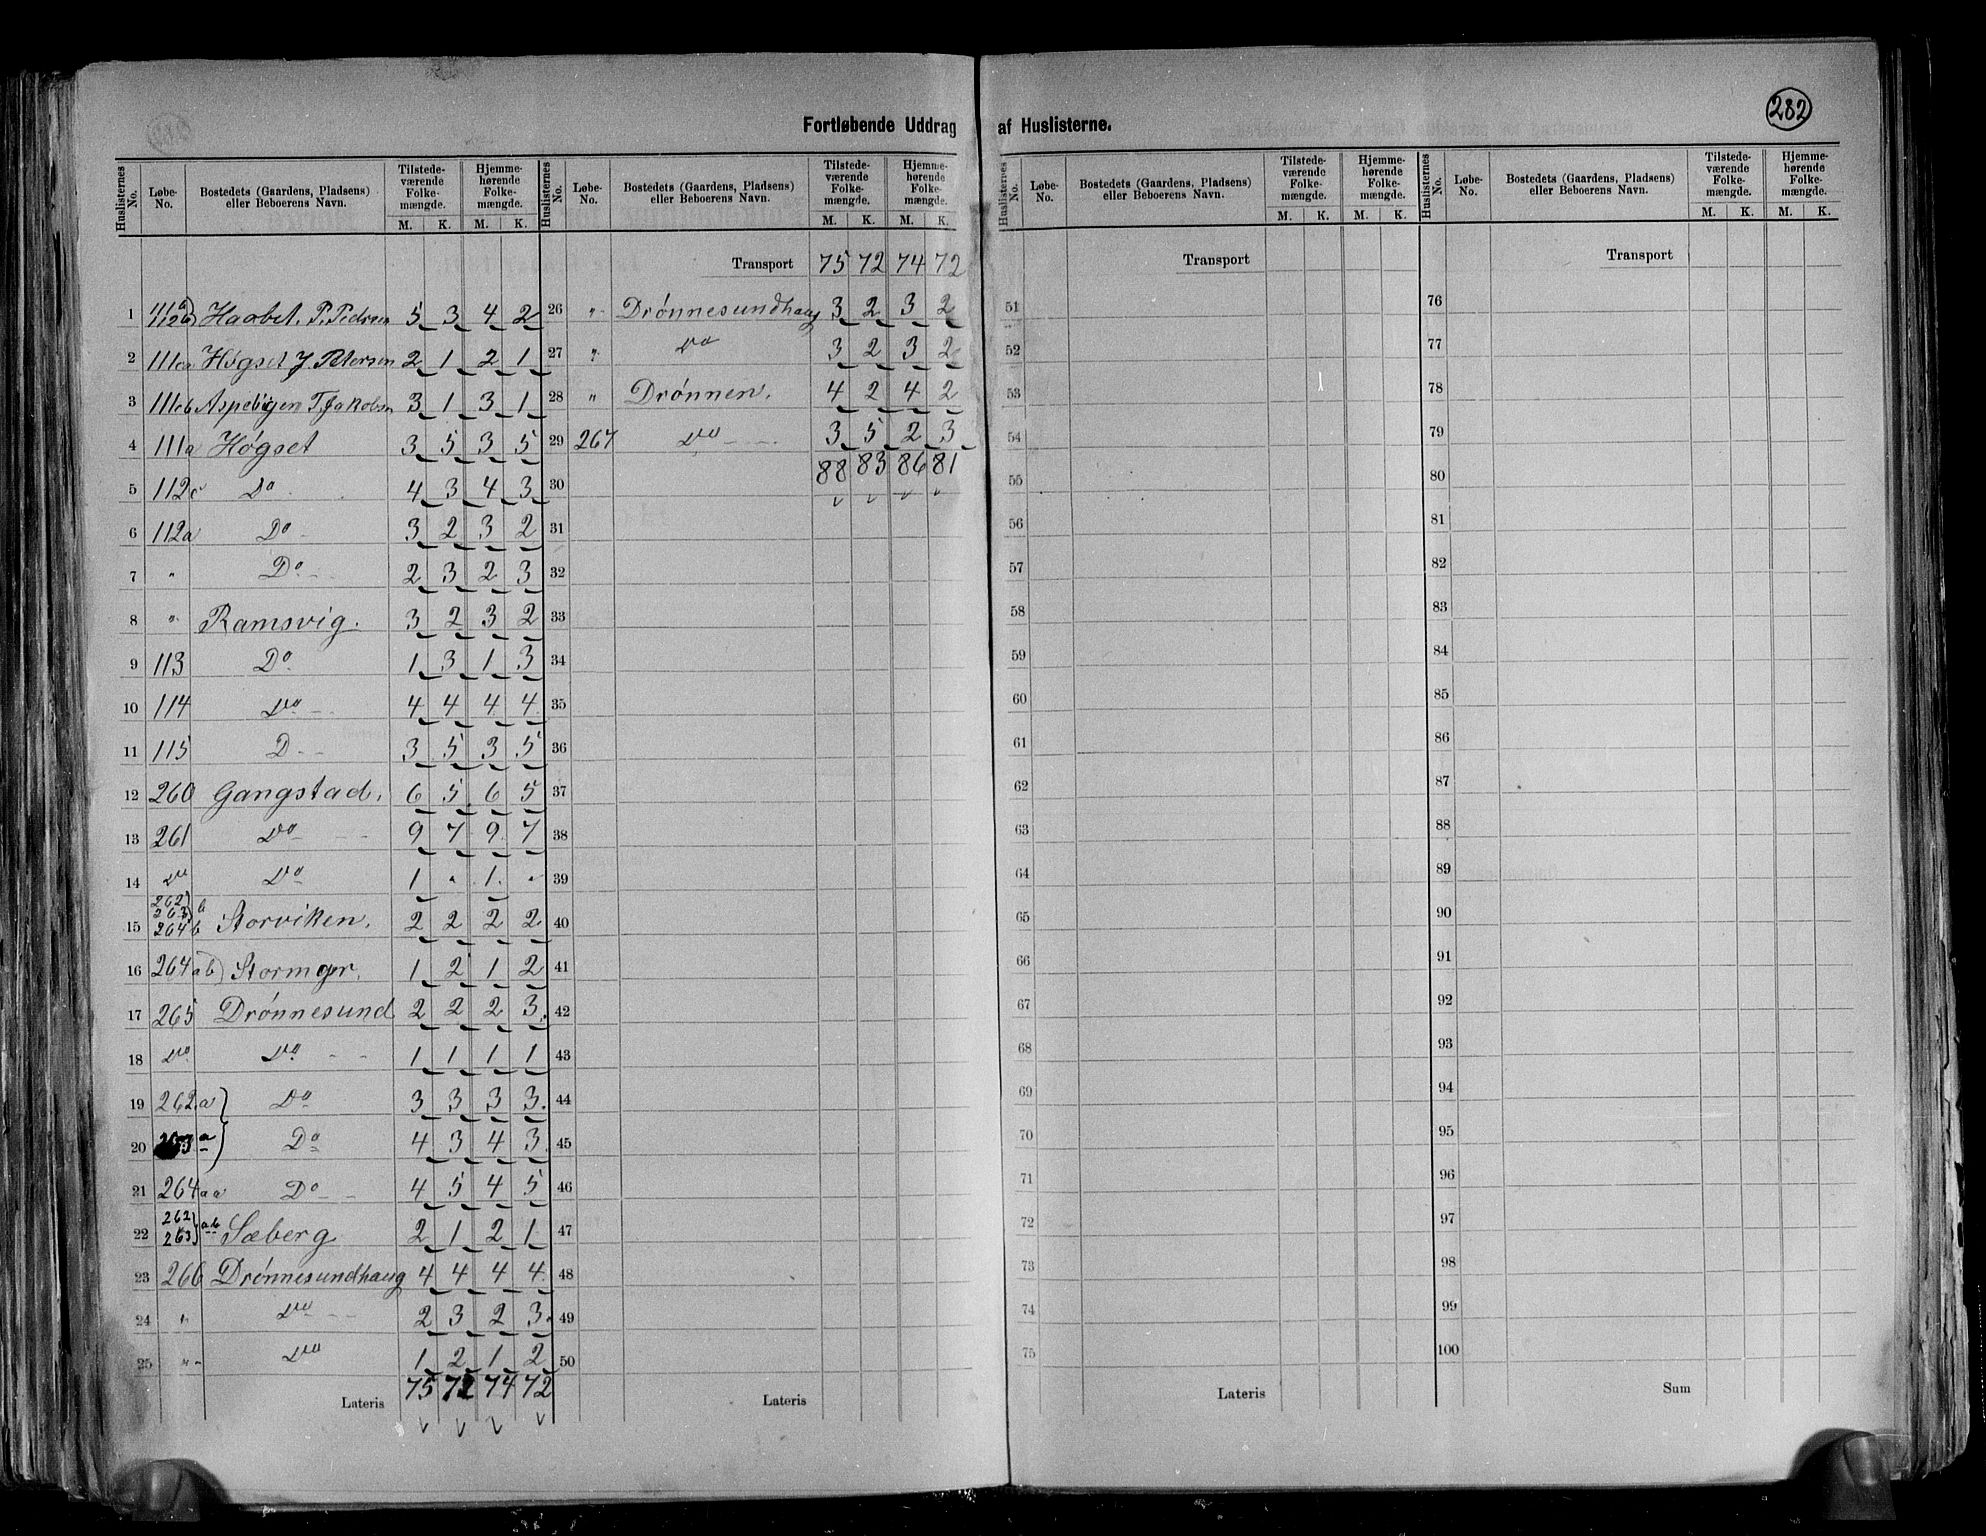 282
Fortløbende Uddrag af Huslisterne.
Huslisternes No. Løbe-No. Bostedets (Gaardens, Pladsens) eller Beboerens Navn. Tilstede-værende Folke-mængde. M. K. Hjemme-hørende Folke-mængde. M. K.
1 Haabet. P. Pedersen 5 3 4 2
2 111ca Høgset J. Petersen 2 1 2 1
3 111cb T. Jakobsen 3 1 3 1
4 111a Høgset 3 5 3 5
5 112c Do 4 3 4 3
6 112a Do 3 2 3 2
7 " Do 2 3 2 3
8 " Ramsvig. 3 2 3 2
9 113 Do 1 3 1 3
10 114 Do 4 4 4 4
11 115 D 3 5 3 5
12 260 Gangstad. 6 5 6 5
13 261 Do 9 7 9 7
14 Do Do 1 " 1 "
15 262 263 } b 264 b Storviken. 2 2 2 2
16 264 ab) 1 2 1 2
17 265 Drønnesund 2 2 2 3
18 Do Do 1 1 1 1
19 262 a } Do 3 3 3 3
20 263 a Do 4 3 4 3
21 264 aa Do 4 5 4 5
22 262 263 } ab Sæberg 2 1 2 1
23 266 Drønnesundhaug 4 4 4 4
24 " Do 2 3 2 3
25 " Do 1 2 1 2
Lateris 75 72 74 72
Huslisternes No. Løbe-No. Bostedets (Gaardens, Pladsens) eller Beboerens Navn. Tilstede-værende Folke-mængde. M. K. Hjemme-hørende Folke-mængde. M. K.
Transport 75 72 74 72
26 " Drønnesundhaug 3 2 3 2
27 " Do 3 2 3 2
28 " Drønnen. 4 2 4 2
29 267 Do 3 5 2 3
30 88 83 86 81
31
32
33
34
35
36
37
38
39
40
41
42
43
44
45
46
47
48
49
50
Lateris
Huslisternes No. Løbe-No. Bostedets (Gaardens, Pladsens) eller Beboerens Navn. Tilstede-værende Folke-mængde. M. K. Hjemme-hørende Folke-mængde. M. K.
Transport
51
52
53
54
55
56
57
58
59
60
61
62
63
64
65
66
67
68
69
70
71
72
73
74
75
Lateris
Huslisternes No. Løbe-No. Bostedets (Gaardens, Pladsens) eller Beboerens Navn. Tilstede-værende Folke-mængde. M. K. Hjemme-hørende Folke-mængde. M. K.
Transport
76
77
78
79
80
81
82
83
84
85
86
87
88
89
90
91
92
93
94
95
96
97
98
99
100
Sum